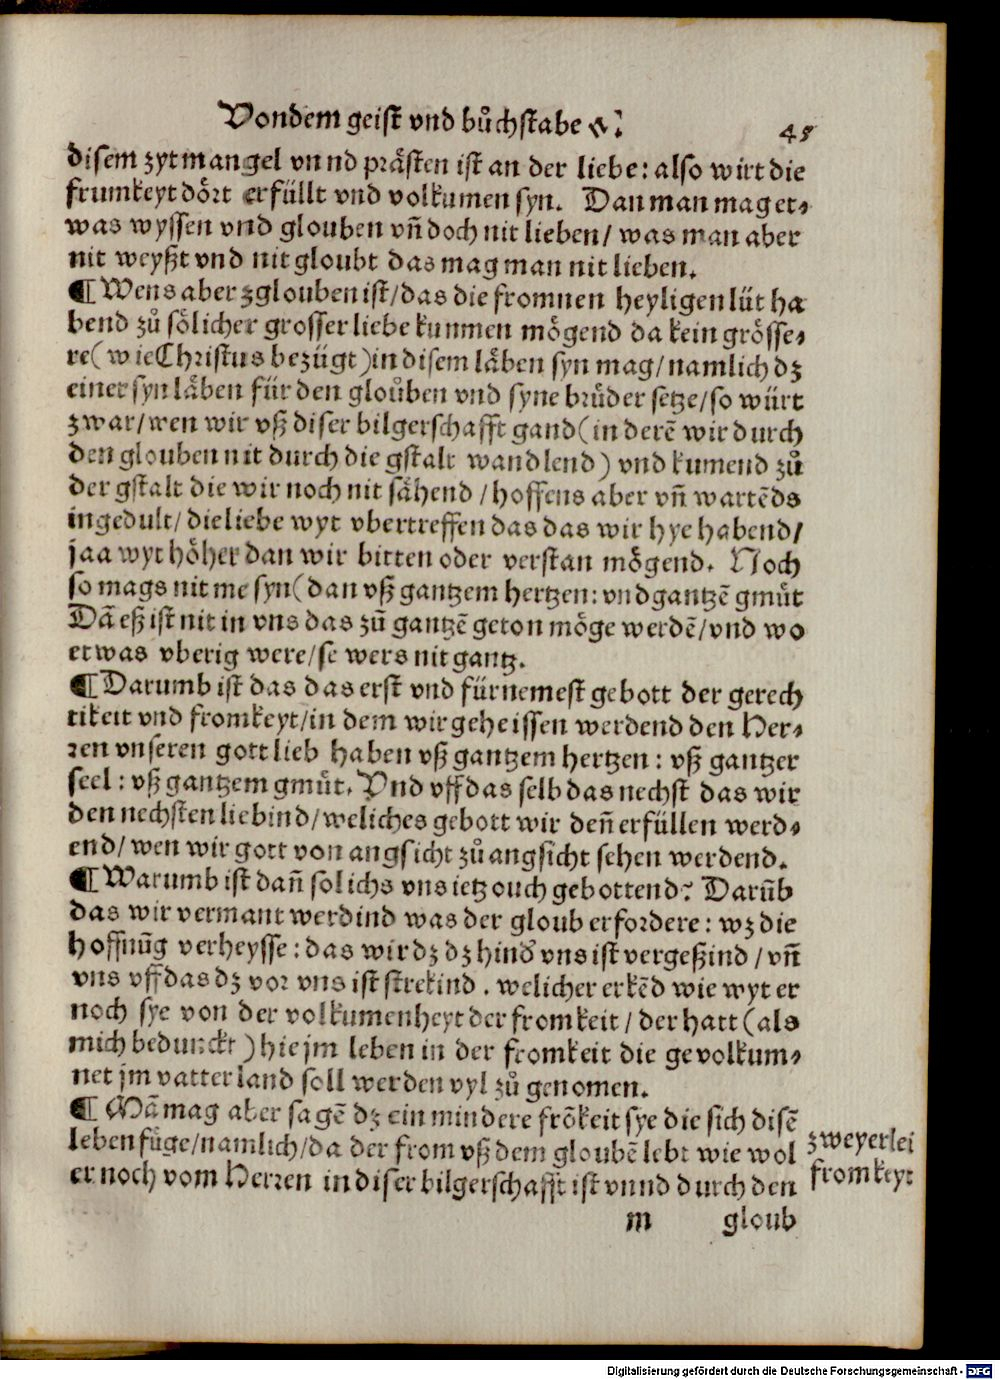 Von dem geist vnd bůchstabe
45
disem zyt mangel vnnd prästen ist an der liebe: also wirt die
frumkeyt dört erfüllt vnd volkumen syn. Dan man mag et⸗
was wyssen vnd glouben vñ doch nit lieben/ was man aber
nit weyßt vnd nit gloubt das mag man nit lieben.
¶ Wens aber zglouben ist/ das die fromnen heyligen lüt ha
bend zů sölicher grosser liebe kunmen mögend da kein grösse⸗
re( wie Christus bezügt )in disem läben syn mag/ namlich dz
einer syn läben für den gloůben vnd syne brüder setze/ so würt
zwar/ wen wir vß diser bilgerschafft gand( in derē wir durch
den glouben nit durch die gstalt wandlend ) vnd kumend zů
der gstalt die wir noch nit sähend / hoffens aber vñ wartēds
in gedult/ die liebe wyt vbertreffen das das wir hye habend/
jaa wyt höher dan wir bitten oder verstan mögend. Noch
so mags nit me syn( dan vß gantzem hertzen: vnd gantzē gmüt
Dā eß ist nit in vns das zū gantzē geton möge werdē/ vnd wo
etwas vberig were/ se wers nit gantz.
¶ Darumb ist das das erst vnd fürnemest gebott der gerech
tikeit vnd fromkeyt/ in dem wir geheissen werdend den Her⸗
ren vnseren gott lieb haben vß gantzem hertzen: vß gantzer
seel: vß gantzem gmüt. Vnd vff das selb das nechst das wir
den nechsten liebind/ weliches gebott wir deñ erfüllen werd⸗
end/ wen wir gott von angsicht zů angsicht sehen werdend.
¶ Warumb ist dañ solichs vns ietz ouch gebottend? Darūb
das wir vermant werdind was der gloub erfordere: wz die
hoffnūg verheysse: das wir dz dz hind̕ vns ist vergeßind / vñ
vns vff das dz vor vns ist strekind. welicher erkēd wie wyt er
noch sye von der volkumenheyt der fromkeit/ der hatt( als
mich bedunckt ) hie jm leben in der fromkeit die gevolkum⸗
net jm vatter land soll werden vyl zů genomen.
¶ Mā mag aber sagē dz ein mindere frōkeit sye die sich disē
leben füge/ namlich/ da der from vß dem gloubē lebt wie wol
er noch vom Herren in diser bilgerschafft ist vnnd durch den
zweyerlei
fromkeyt
m
gloub
Digitalisierung gefördert durch die Deutsche Forschungsgemeinschaft - DFG